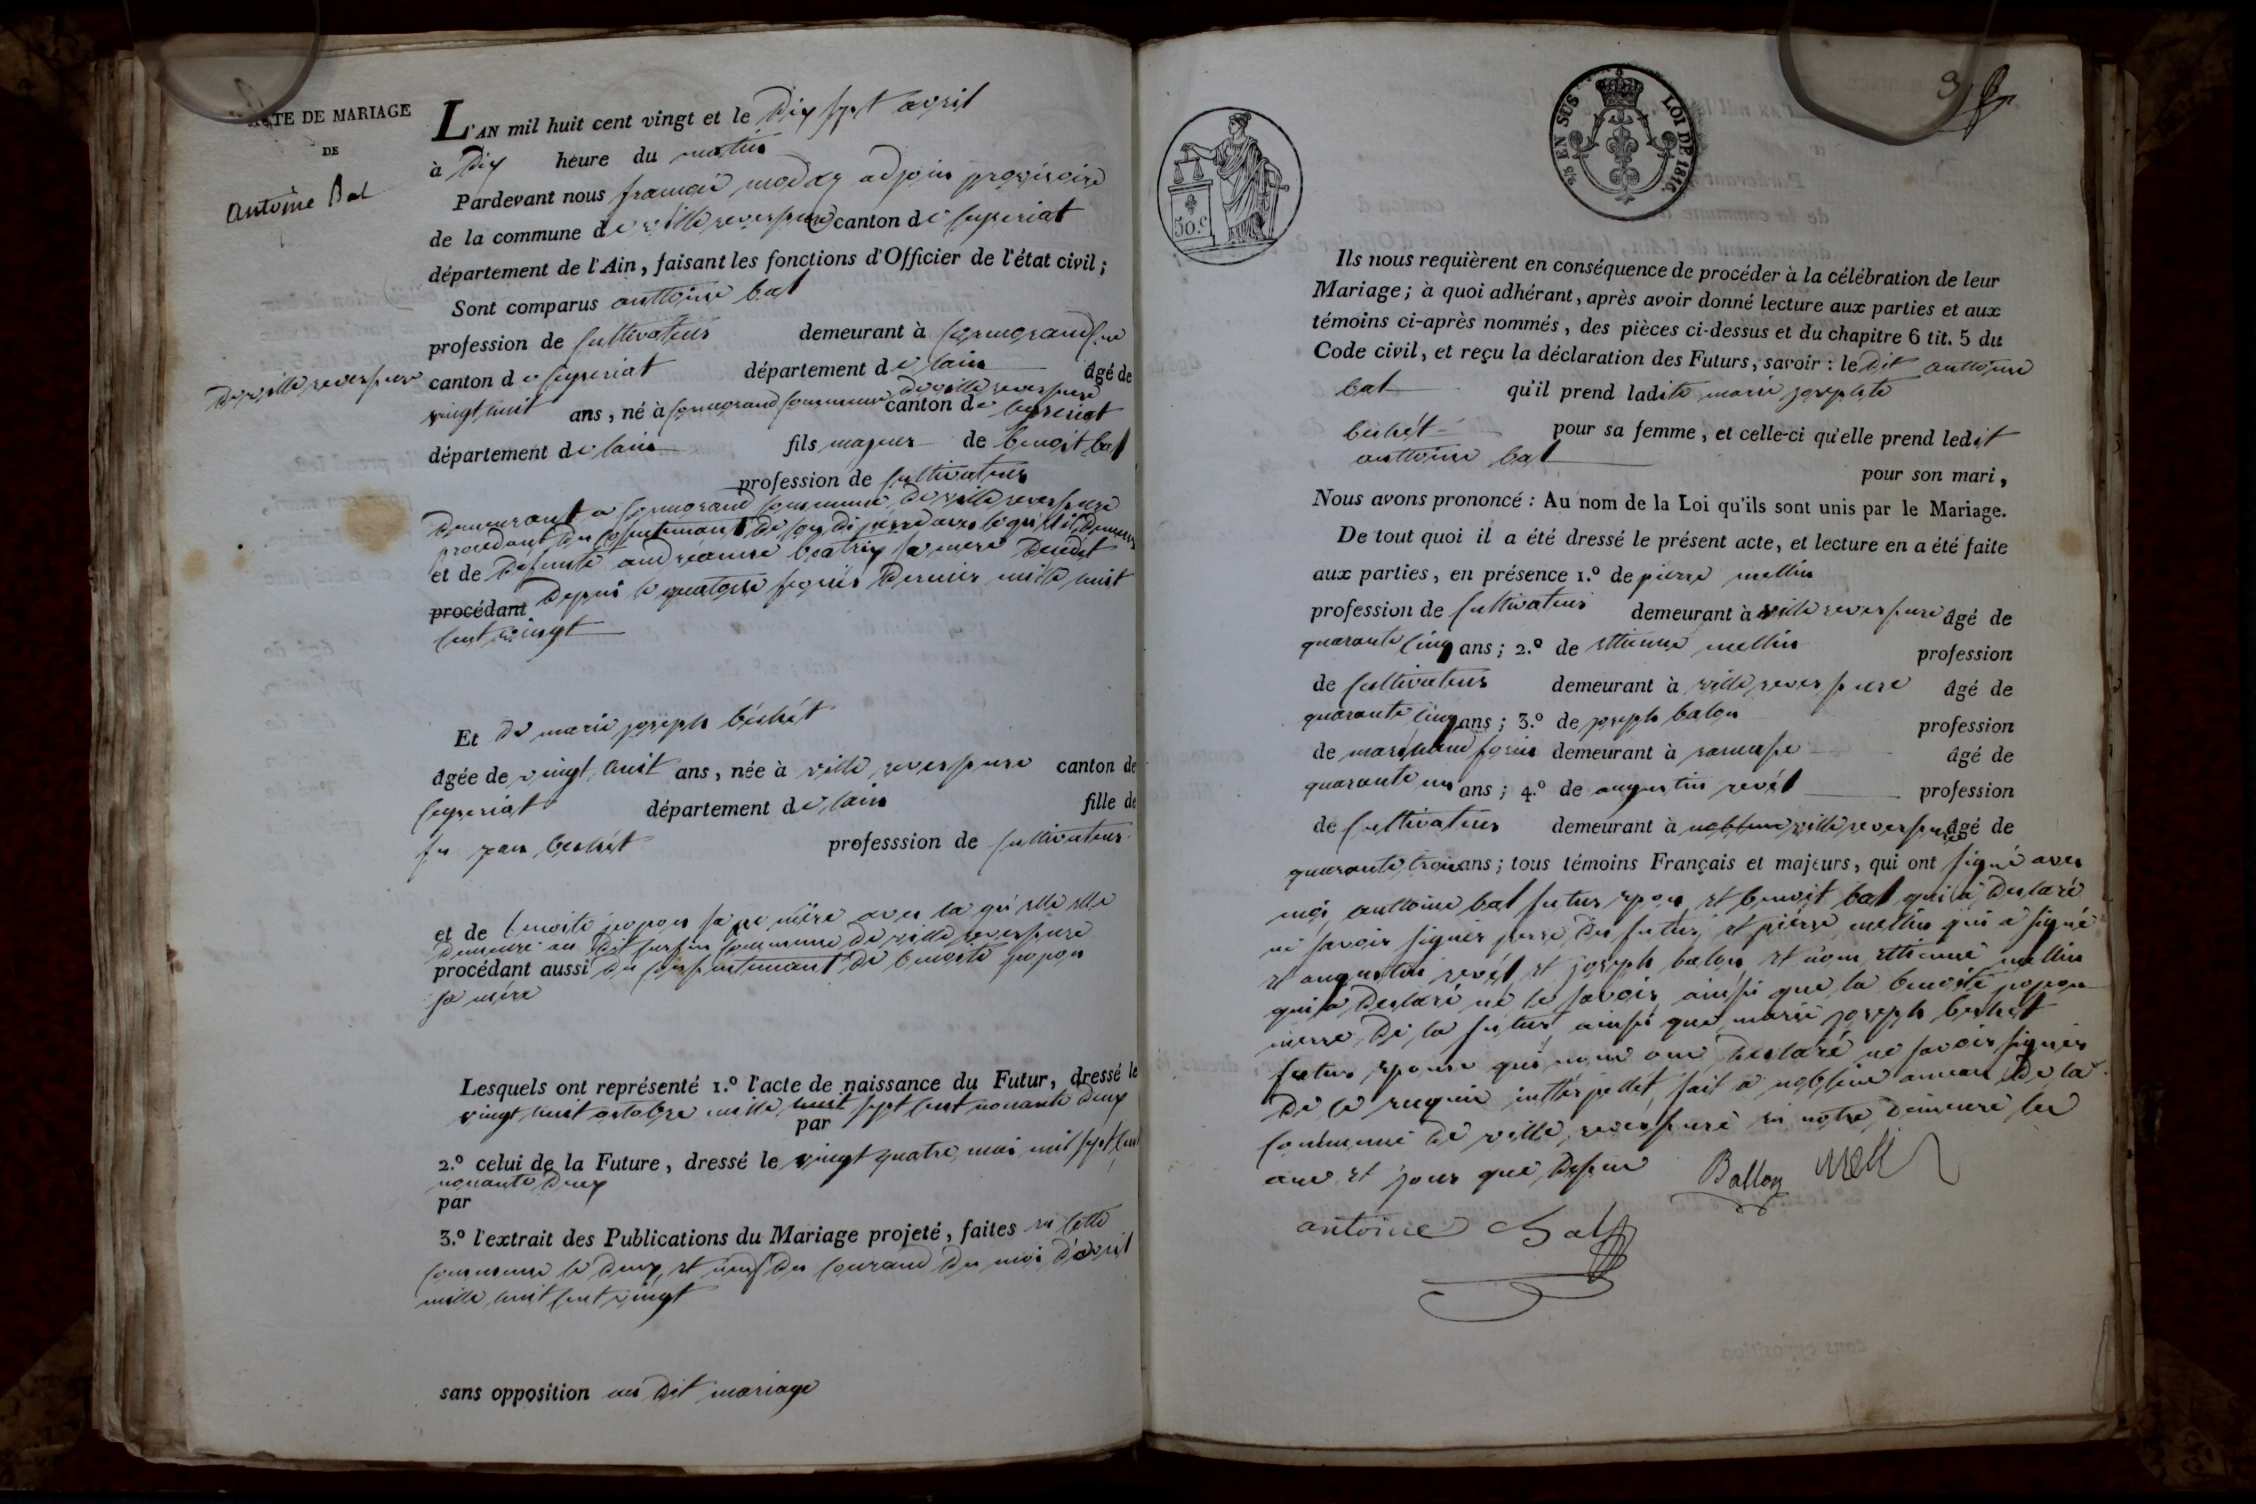 ACTE DE MARIAGE
DE
Antoine Bal
L'AN mil huit cent vingt et le dix sept avril
à dix heure du matin
Pardevant nous françois moday adjoin provisoire
de la commune de villereversure canton de Ceyseriat
département de l'Ain, faisant les fonctions d'Officier de l'état civil;
Sont comparus anttoine bal
profession de Cultivateur demeurant à Cormorand Cne
de villereversure
canton de Ceyseriat département de lain âgé de
vingt huit ans, né à Cormorand Commune de villereversure canton de Ceyseriat
département de lain fils majeur de benoit bal
profession de Cultivateur
demeurant a Cormorand Commune de villereversure
procedant du Consentemant de son di père avec le quel il demeure
et de défunte beatrix sa mere décédét
procédant depuis le quatorse fevrier dernier mille huit
Cent vingt
Et de marie joseph béchét
âgée de vingt huit ans, née à villereversure canton de
Ceyseriat département de lain fille de
fu jean bechét professsion de Cultivateur
et de benoite popon sa mère avec la qu'elle elle
demeure au dit Commune de villereversure
procédant aussi du Consentemant de benoite popon
sa mère
Lesquels ont représenté 1.º l'acte de naissance du Futur, dressé le
vingt huit octobre mille huit sept cent nonante deux
par
2.º celui de la Future, dressé le vingt quatre mai mil sept Cent
nonante deux
par
3.º l'extrait des Publications du Mariage projeté, faites en Cette
Commune le deux et neuf du Courand du moi d'avril
mille huit Cent vingt
sans opposition au dit mariage
3
50 c.
25 EN SUS LOI DE 1816.
Ils nous requièrent en conséquence de procéder à la célébration de leur
Mariage; à quoi adhérant, après avoir donné lecture aux parties et aux
témoins ci-après nommés, des pièces ci-dessus et du chapitre 6 tit. 5 du
Code civil, et reçu la déclaration des Futurs, savoir: le dit anttoine
bal qu'il prend ladite marie josephte
béchét pour sa femme, et celle-ci qu'elle prend ledit
anttoine bal
pour son mari,
Nous avons prononcé: Au nom de la Loi qu'ils sont unis par le Mariage.
De tout quoi il a été dressé le présent acte, et lecture en a été faite
aux parties, en présence 1.º de pierre mellin
profession de Cultivateur demeurant à villereversure âgé de
quarante Cinq ans; 2.º de ettienne mellin
profession
de Cultivateur demeurant à villereversure âgé de
quarante Cinq ans; 3.º de joseph balon
profession
de marchand forin demeurant à ramasse âgé de
quarante un ans; 4.º de augustin revél profession
de Cultivateur demeurant à noblens villereversure âgé de
quarante trois ans; tous témoins Français et majeurs, qui ont signé avec
moi anttoine bal futur epou et benoit bal qui a declaré
ne savoir signer perre du futur et pierre mellin qui a signé
et augustin revél et joseph balon et nom ettienne mellin
qui a declaré ne le savoir ainsi que la benoite popon
merre de la futur ainsi que marie joseph bechét
futur epouse qui nous ont declaré ne savoir signer
de ce requie intterpellét, fait a noblens ameau de la
Commune de villereversure en notre demeure les
ans et jour que desu
Ballon Mell
antoine Bal